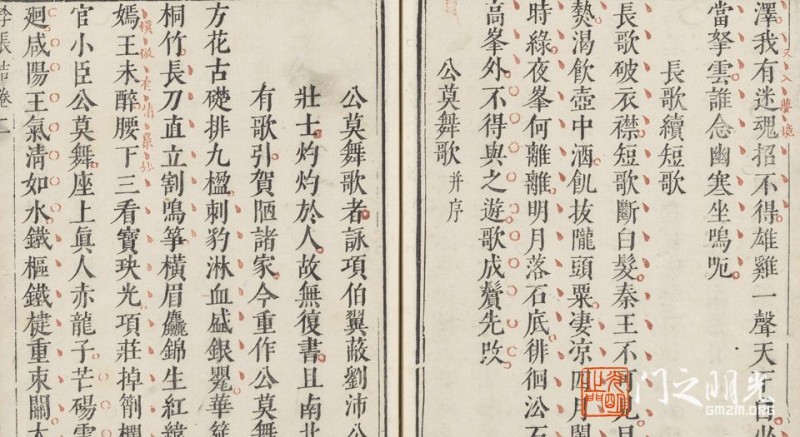 澤我有迷魂招不得雄雞一聲天下白少
當拏雲誰念幽寒坐嗚呃
長歌續短歌
長歌破衣襟短歌斷白髮秦王不可見旦
熱渴飲壺中酒飢拔隴頭粟凄涼四月闌
時綠夜峯何離離明月落石底徘徊沿石
高峯外不得與之遊歌成鬢先改
公莫舞歌 并序
公莫舞歌者詠項伯翼蔽劉沛公
壯士灼灼於人故無復書且南北
有歌引賀陋諸家今重作公莫舞
方花古礎排九楹刺豹淋血盛銀甖華筵
桐竹長刀直立割鳴箏橫眉麤錦生紅緯
嫣王未醉腰下三看寶玦光項莊掉箾欄
官小臣公莫舞座上眞人赤龍子芒碭雲
廻咸陽王氣清如水鐵樞鐵楗重束關大
光明之門
GMZM.ORG